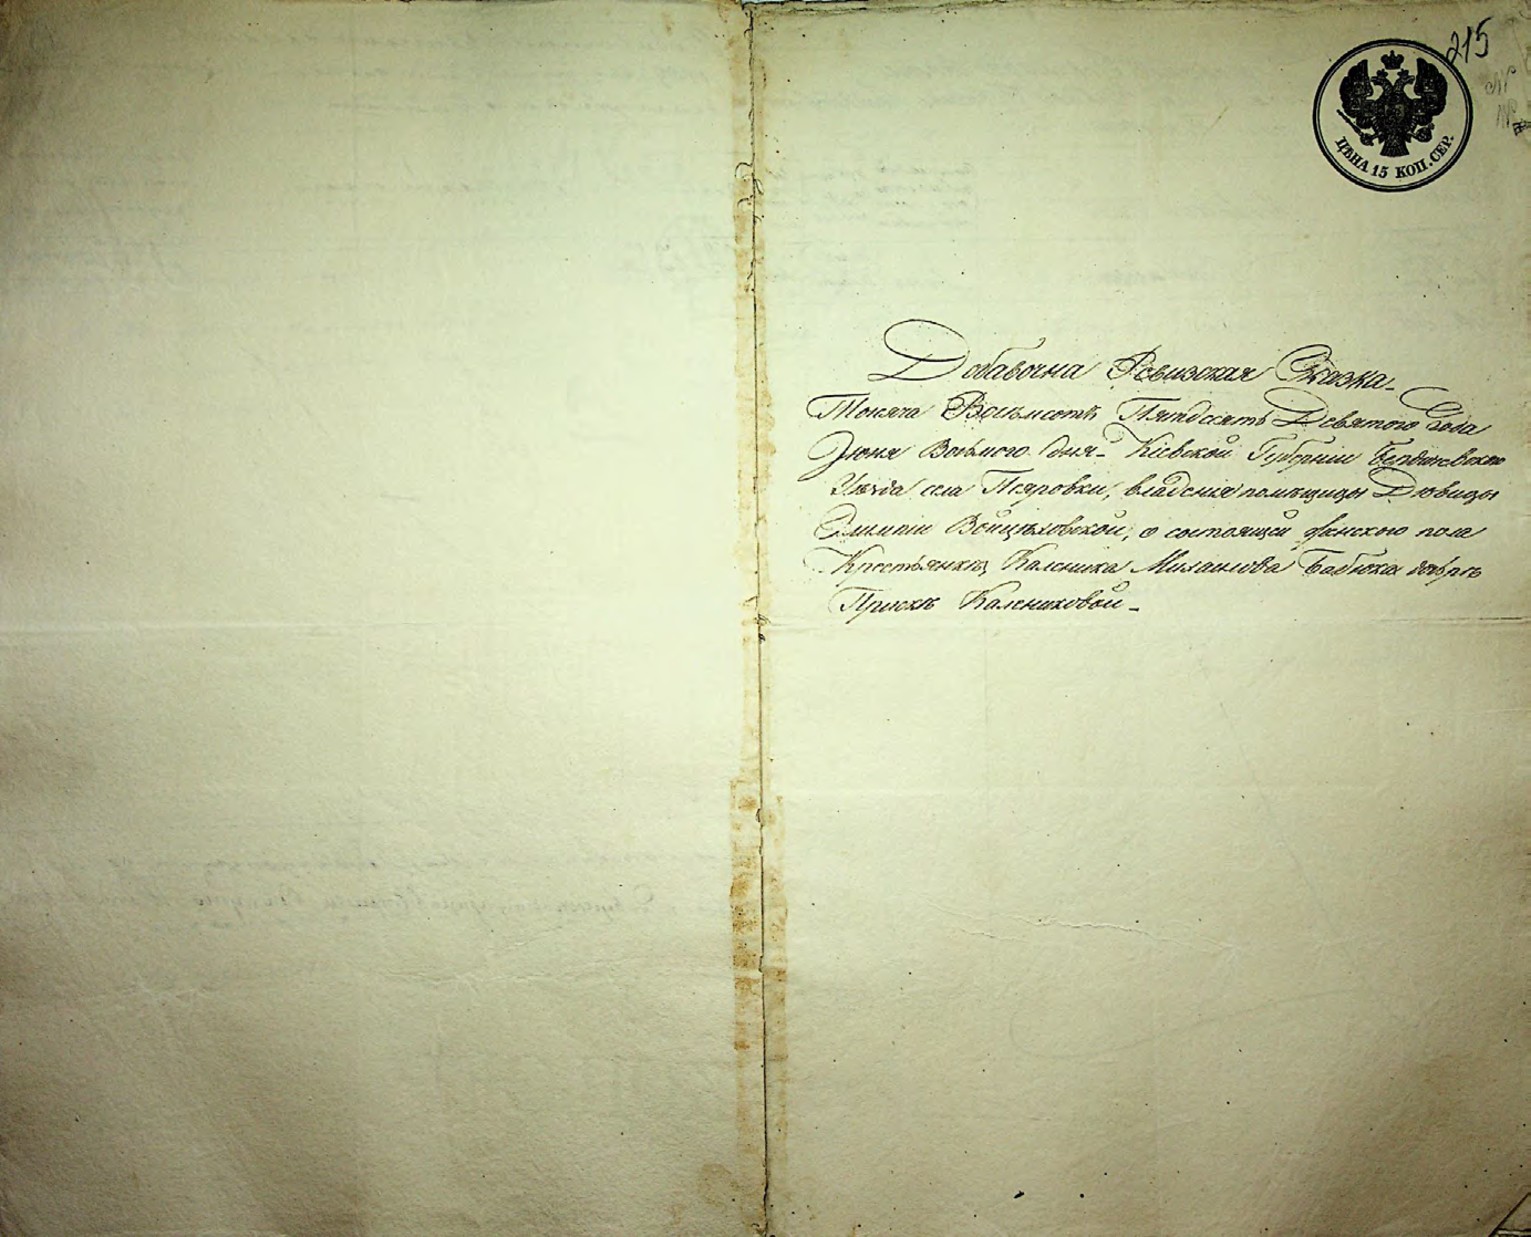 215
ЦѢНА 15 КОП. СЕР.
Добавочна Ревизская Сказка
Тысяча Восемсотъ Пятдесятъ Девятого Года
Іюня Восьмого дня Кіевской Губерніи Бердичевского
Уѣзда села Псяровки, владенія помѣщицы Дѣвицы
Олимпіи Войцѣховской, о состоящей женского пола
Крестьянкѣ, Каленика Михайлова Бабюка дочрѣ
Прискѣ Калениковой